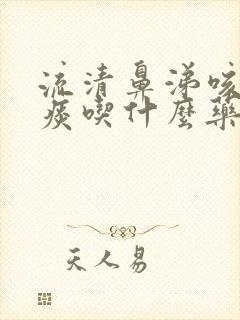 流清鼻涕咳
痰喫什麼藥
天人易